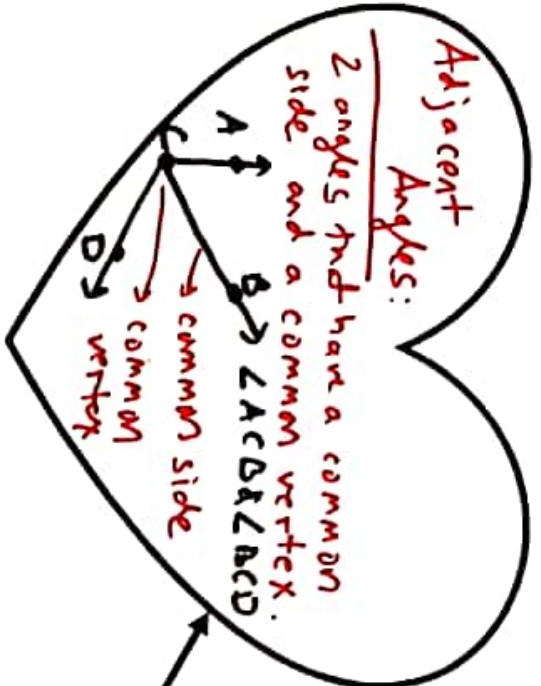 Adjacent
Angles:
2 angles that have a common
side and a common vertex.
A
B
∠ACB & ∠BCD
C
common side
D
common
vertex